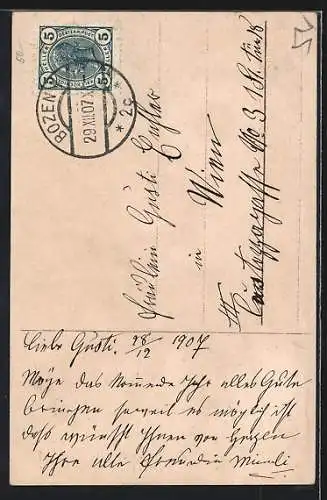 5 5
BOZEN
29 XII 07 X
* 2c *
Fräulein Gusti
in
Wien
III
No 3
Liebe Gusti. 28/12 1907
Möge das kommende Jahr alles Gute
bringen soweit es möglich ist
dass wünscht Ihnen von Herzen
Ihre alte Freundin